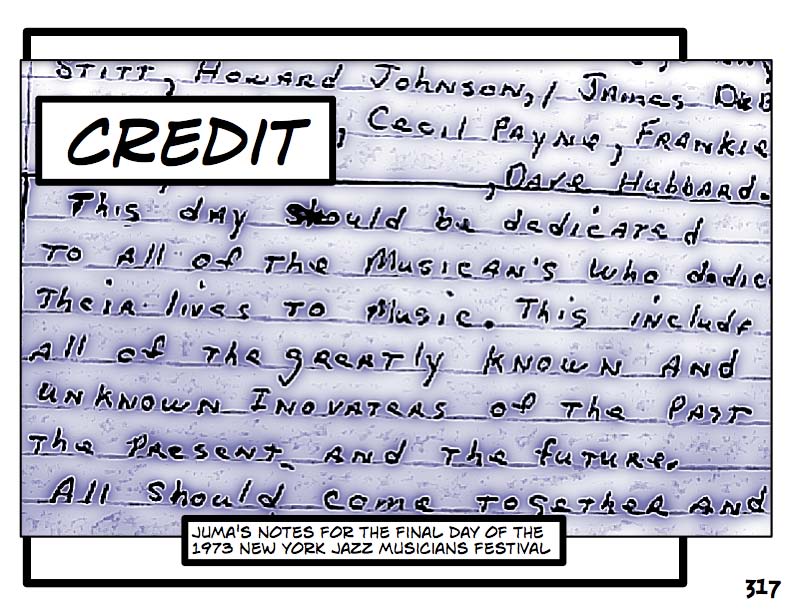 STITT, HOWARD JOHNSON, JAMES DEB
CREDIT
, CECIL PAYNE, FRANKIE
, DAVE HUBBARD.
This dAy should be dedicATed
TO All of The MusicAN's Who dedic
Their lives TO Music. This include
All of The greATly KNOWN AND
UNKNOWN INOVATERS of The PAST
The PreseNT AND The fuTure.
All Should come TOgeTher AND
JUMA'S NOTES FOR THE FINAL DAY OF THE
1973 NEW YORK JAZZ MUSICIANS FESTIVAL
317